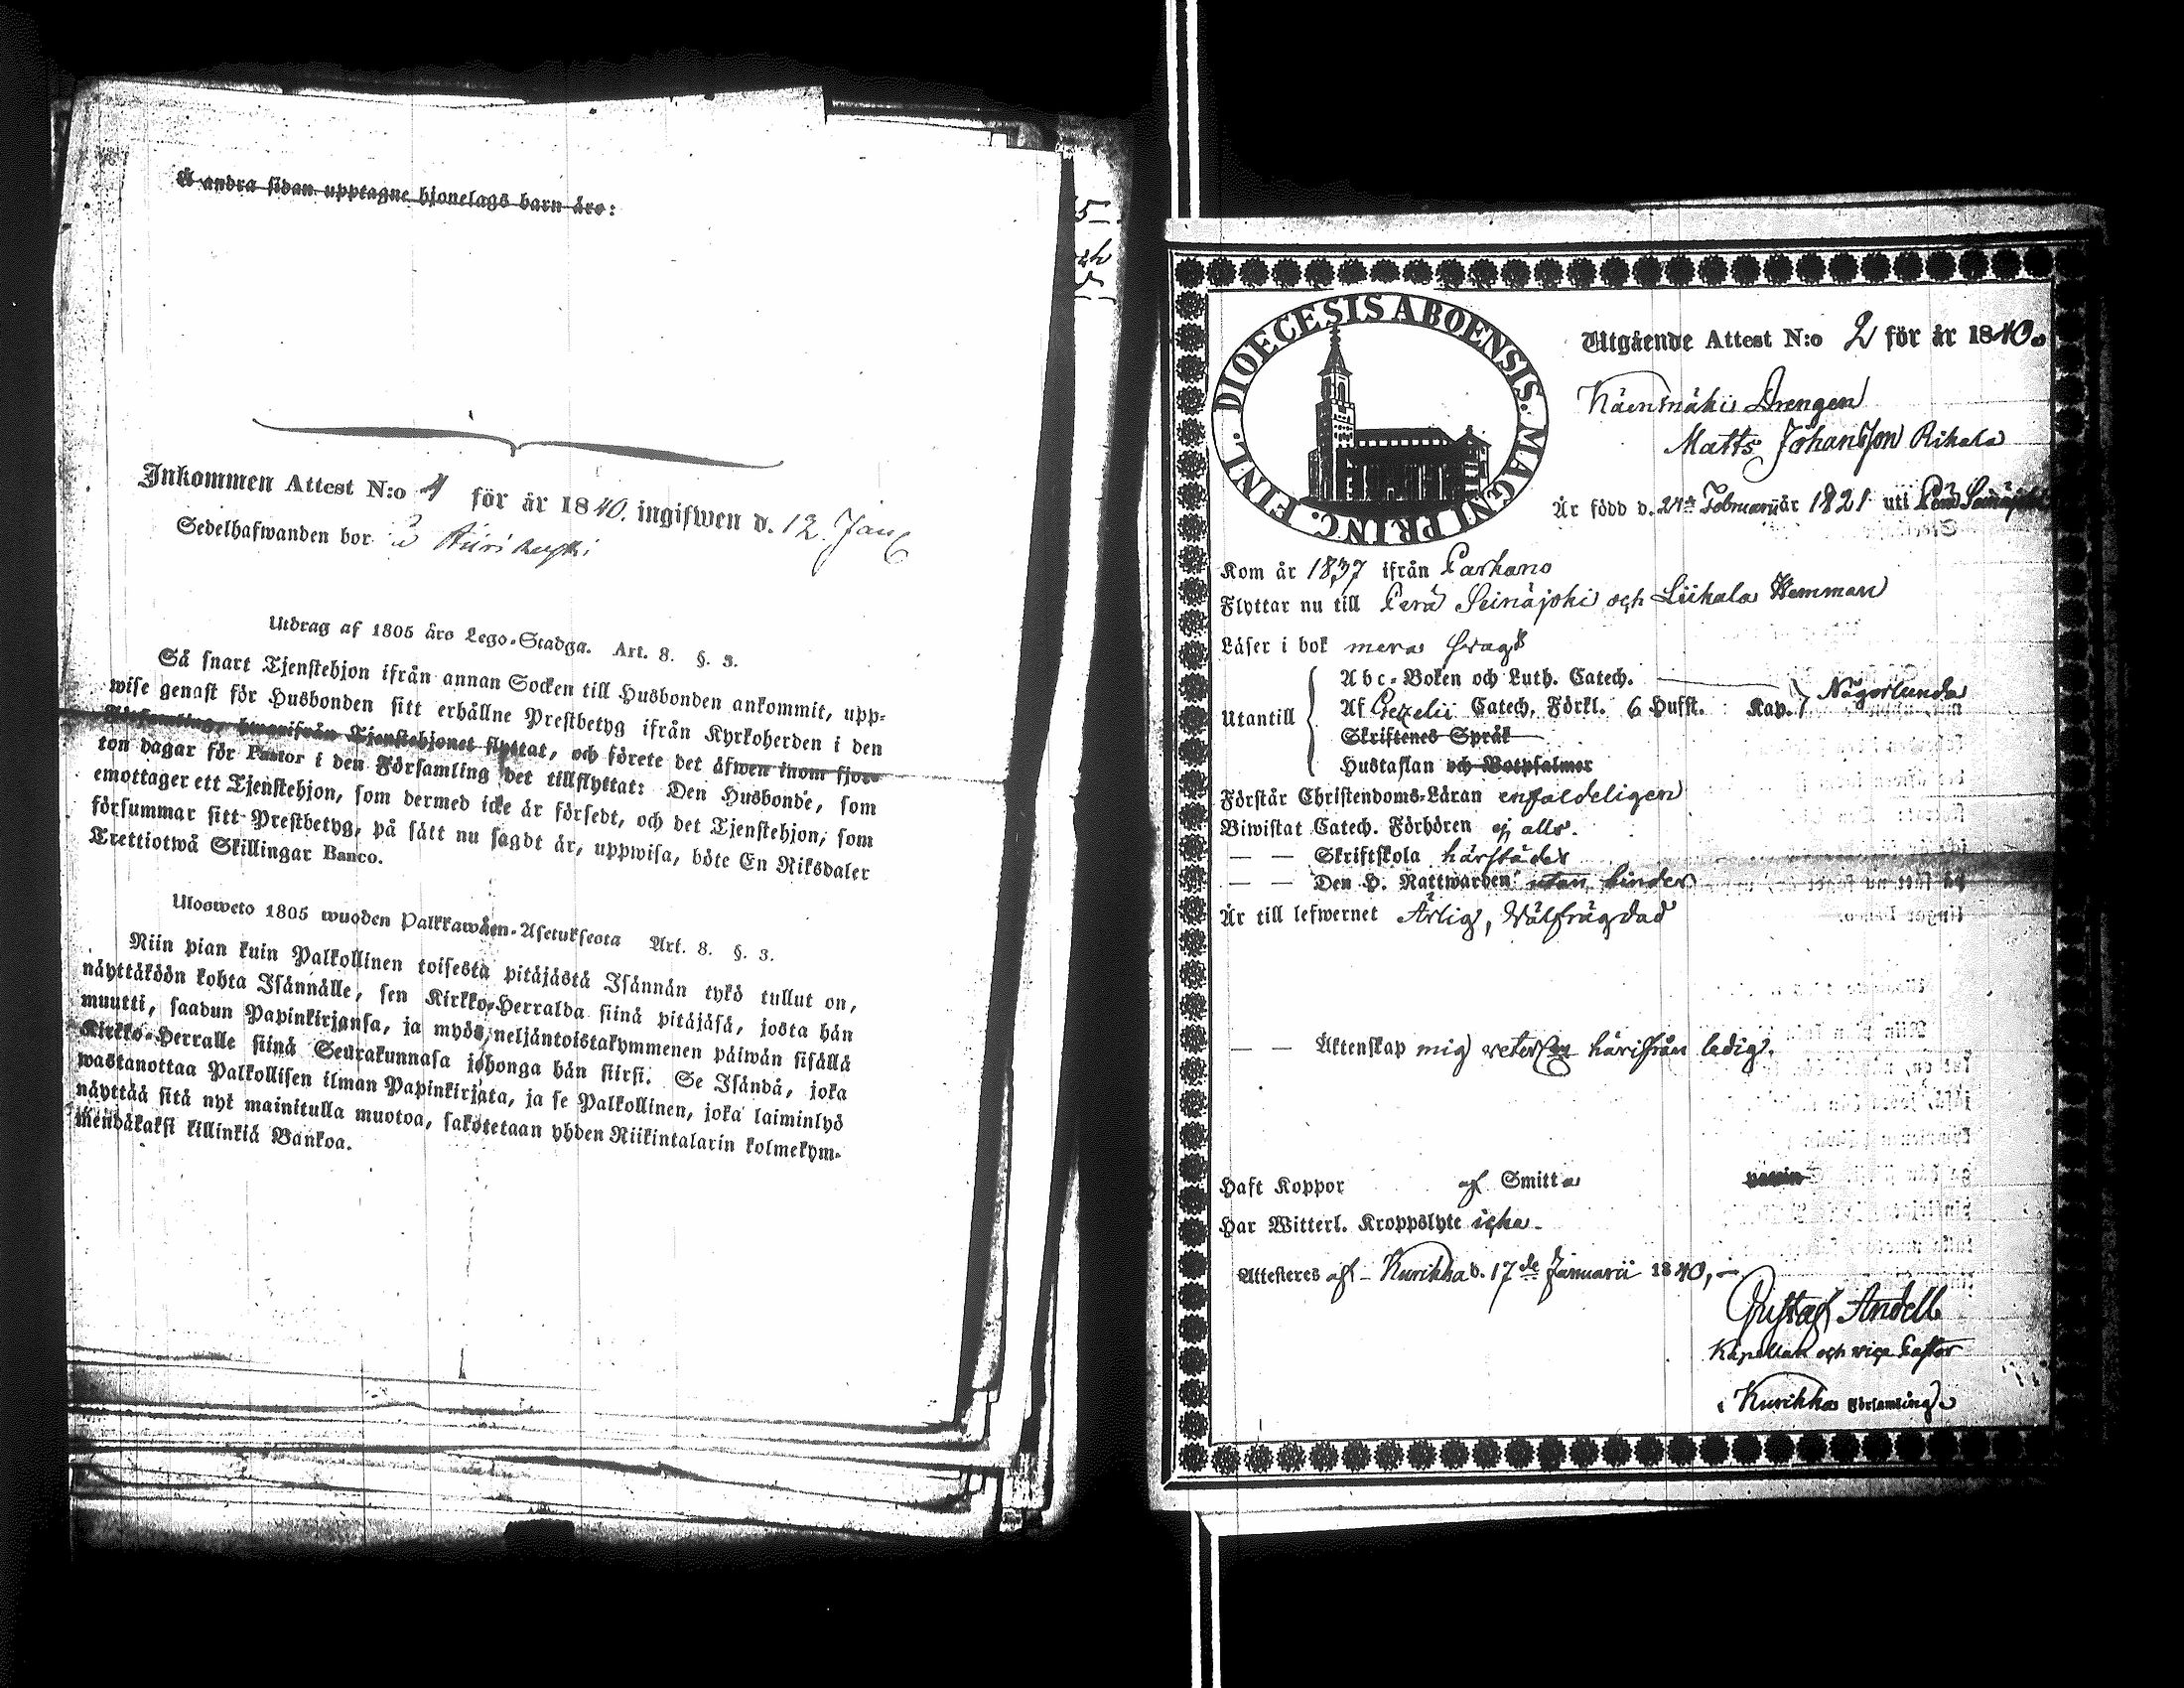 Å andra sidan upptagne hjonelags barn äro:
Inkommen Attest N:o 1 för år 1840. ingifwen d. 12 Jan
Sedelhafwanden bor
Utdrag af 1805 års Lego-Stadga. Art. 8. §. 3.
Så snart Tjenstehjon ifrån annan Socken till Husbonden ankommit, upp-
wise genast för Husbonden sitt erhållne Prestbetyg ifrån Kyrkoherden i den
Församling, hwarifrån Tjenstehjonet flyttat, och förete det äfwen inom fjor-
ton dagar för Pastor i den Församling det tillflyttat: Den Husbonde, som
emottager ett Tjenstehjon, som dermed icke är försedt, och det Tjenstehjon, som
försummar sitt Prestbetyg, på sätt nu sagdt är, uppwisa, böte En Riksdaler
Trettiotwå Skillingar Banco.
Ulosweto 1805 wuoden Palkkawäen-Asetuksesta Art. 8. §. 3.
Niin pian kuin Palkollinen toisesta pitäjästä Isännän tykö tullut on,
näyttäköön kohta Isännälle, sen Kirkko-Herralda siinä pitäjäsä, josta hän
muutti, saadun Papinkirjansa, ja myös neljäntoistakymmenen päiwän sisällä
Kirkko-Herralle siinä Seurakunnasa johonga hän siirsi. Se Isändä, joka
wastanottaa Palkollisen ilman Papinkirjata, ja se Palkollinen, joka laiminlyö
näyttää sitä nyt mainitulla muotoa, sakotetaan yhden Riikintalarin kolmekym-
mendäkaksi killinkiä Bankoa.
DIOECESIS ABOENSIS. MAGNI PRINC. FINL.
Utgående Attest N:o 2 för år 1840.
Käenmäki Drengen
Matts Johansson Rihala
Är född d. 24de Februarii år 1821 uti Perä Seinäjoki
Kom år 1837 ifrån Parkano
Flyttar nu till Perä Seinäjoki och Liikala Hemman
Läser i bok mera swagt
Abc-Boken och Luth. Catech.
Utantill Af Gezelii Catech. Förkl. 6 Hufst. Kap. Någorlunda
Skriftenes Språk
Hustaflan och Botpsalmer
Förstår Christendoms-Läran enfaldeligen
Biwistat Catech. Förhören ej alls.
— — Skriftskola härstädes
— — Den H. Nattwarden utan hinder
Är till lefwernet Ärlig, Wälfrägdad
— — Äktenskap mig veterligen härifrån ledig.
Haft Koppor af Smitta vaccin
Har Witterl. Kroppslyte icke.
Attesteras af Kurikka d. 17de Januarii 1840,
Gustaf Andell
Kapellan och vice Pastor
i Kurikka Församling.